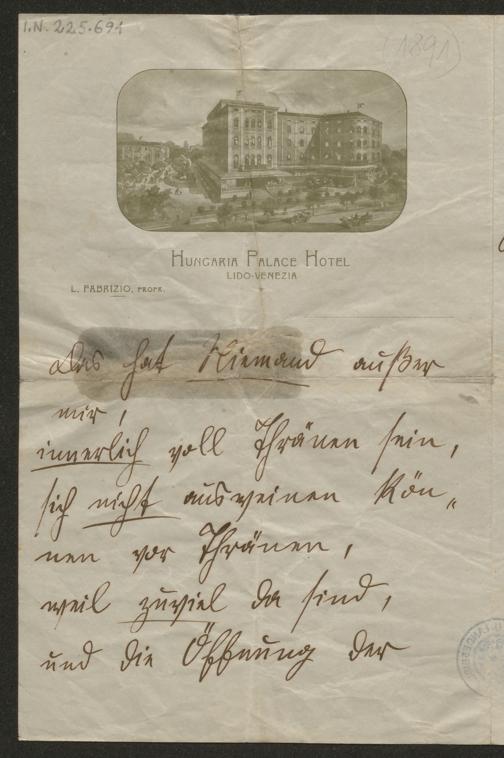 I.N. 225.691
(1891)
HUNGARIA PALACE HOTEL
LIDO-VENEZIA
L. FABRIZIO, PROPR.
Das hat Niemand außer
mir,
innerlich voll Thränen sein,
sich nicht ausweinen kön„
nen vor Thränen,
weil zuviel da sind,
und die Öffnung der